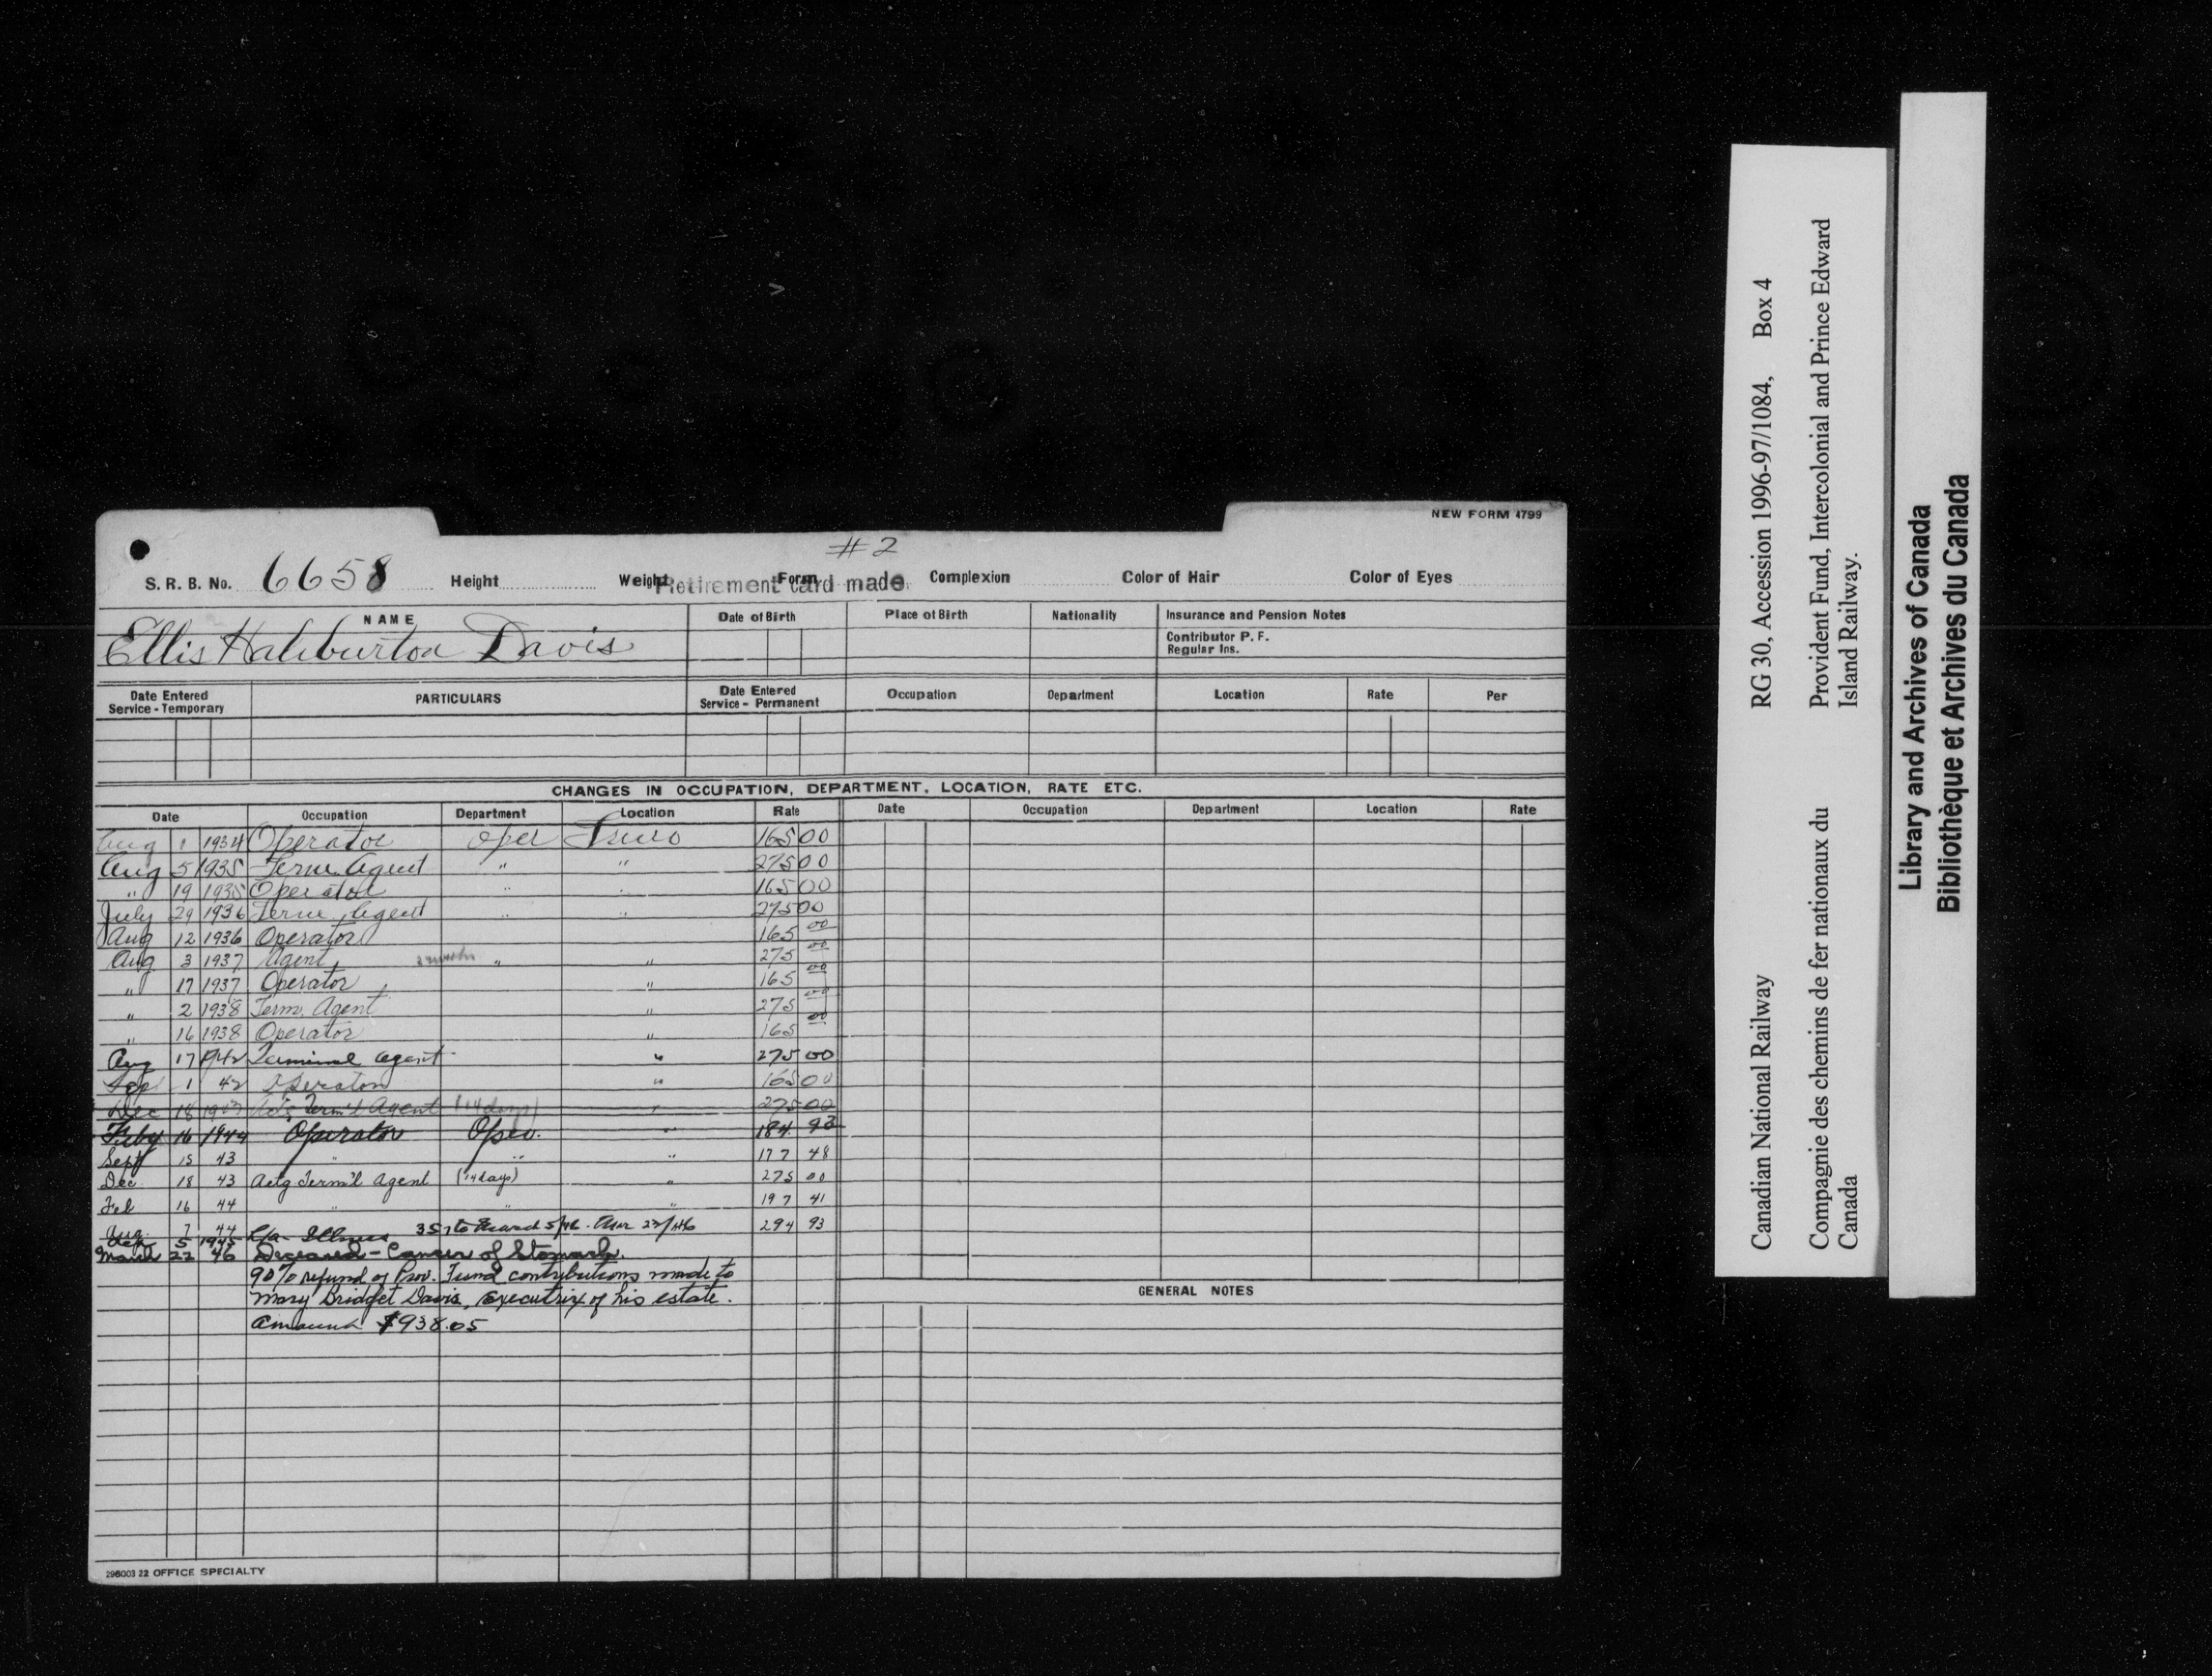 NEW FORM 4799
#2
S. R. B. No. 6658 Height Weight Form Complexion Color of Hair Color of Eyes
Retirement card made.
NAME Date of Birth Place of Birth Nationality Insurance and Pension Notes
Ellis Haliburton Davis
Contributor P. F.
Regular Ins.
Date Entered Service - Temporary PARTICULARS Date Entered Service - Permanent Occupation Department Location Rate Per
CHANGES IN OCCUPATION, DEPARTMENT, LOCATION, RATE ETC.
Date Occupation Department Location Rate Date Occupation Department Location Rate
Aug 1 1934 Operator Oper Truro 165 00
Aug 5 1935 Term Agent " " 275 00
" 19 1935 Operator " " 165 00
July 29 1936 Term Agent " " 275 00
Aug 12 1936 Operator 165 00
Aug 3 1937 Agent " " 275 00
" 17 1937 Operator " 165 00
" 2 1938 Term. Agent " 275 00
" 16 1938 Operator " 165 00
Aug 17 1942 Terminal Agent " 275 00
Sep 1 42 Operator " 165 00
Dec 18 1943 Act'g Term'l Agent (14 days) " 275 00
Feby 16 1944 Operator Oper. " 184 93
Sept 15 43 " " " 177 48
Dec 18 43 Actg Term'l Agent (14 days) " 275 00
Feb 16 44 " " " 197 41
Aug. 7 44 294 93
5 1945 L/a Illness to March 5/46 - Mar 22/46
March 22 46 Deceased - Cancer of Stomach.
90% refund of Prov. Fund contributions made to
Mary Bridget Davis, Executrix of his estate.
Amount $938.05
GENERAL NOTES
296003 22 OFFICE SPECIALTY
Canadian National Railway RG 30, Accession 1996-97/1084, Box 4
Compagnie des chemins de fer nationaux du Canada
Provident Fund, Intercolonial and Prince Edward Island Railway.
Library and Archives of Canada
Bibliothèque et Archives du Canada